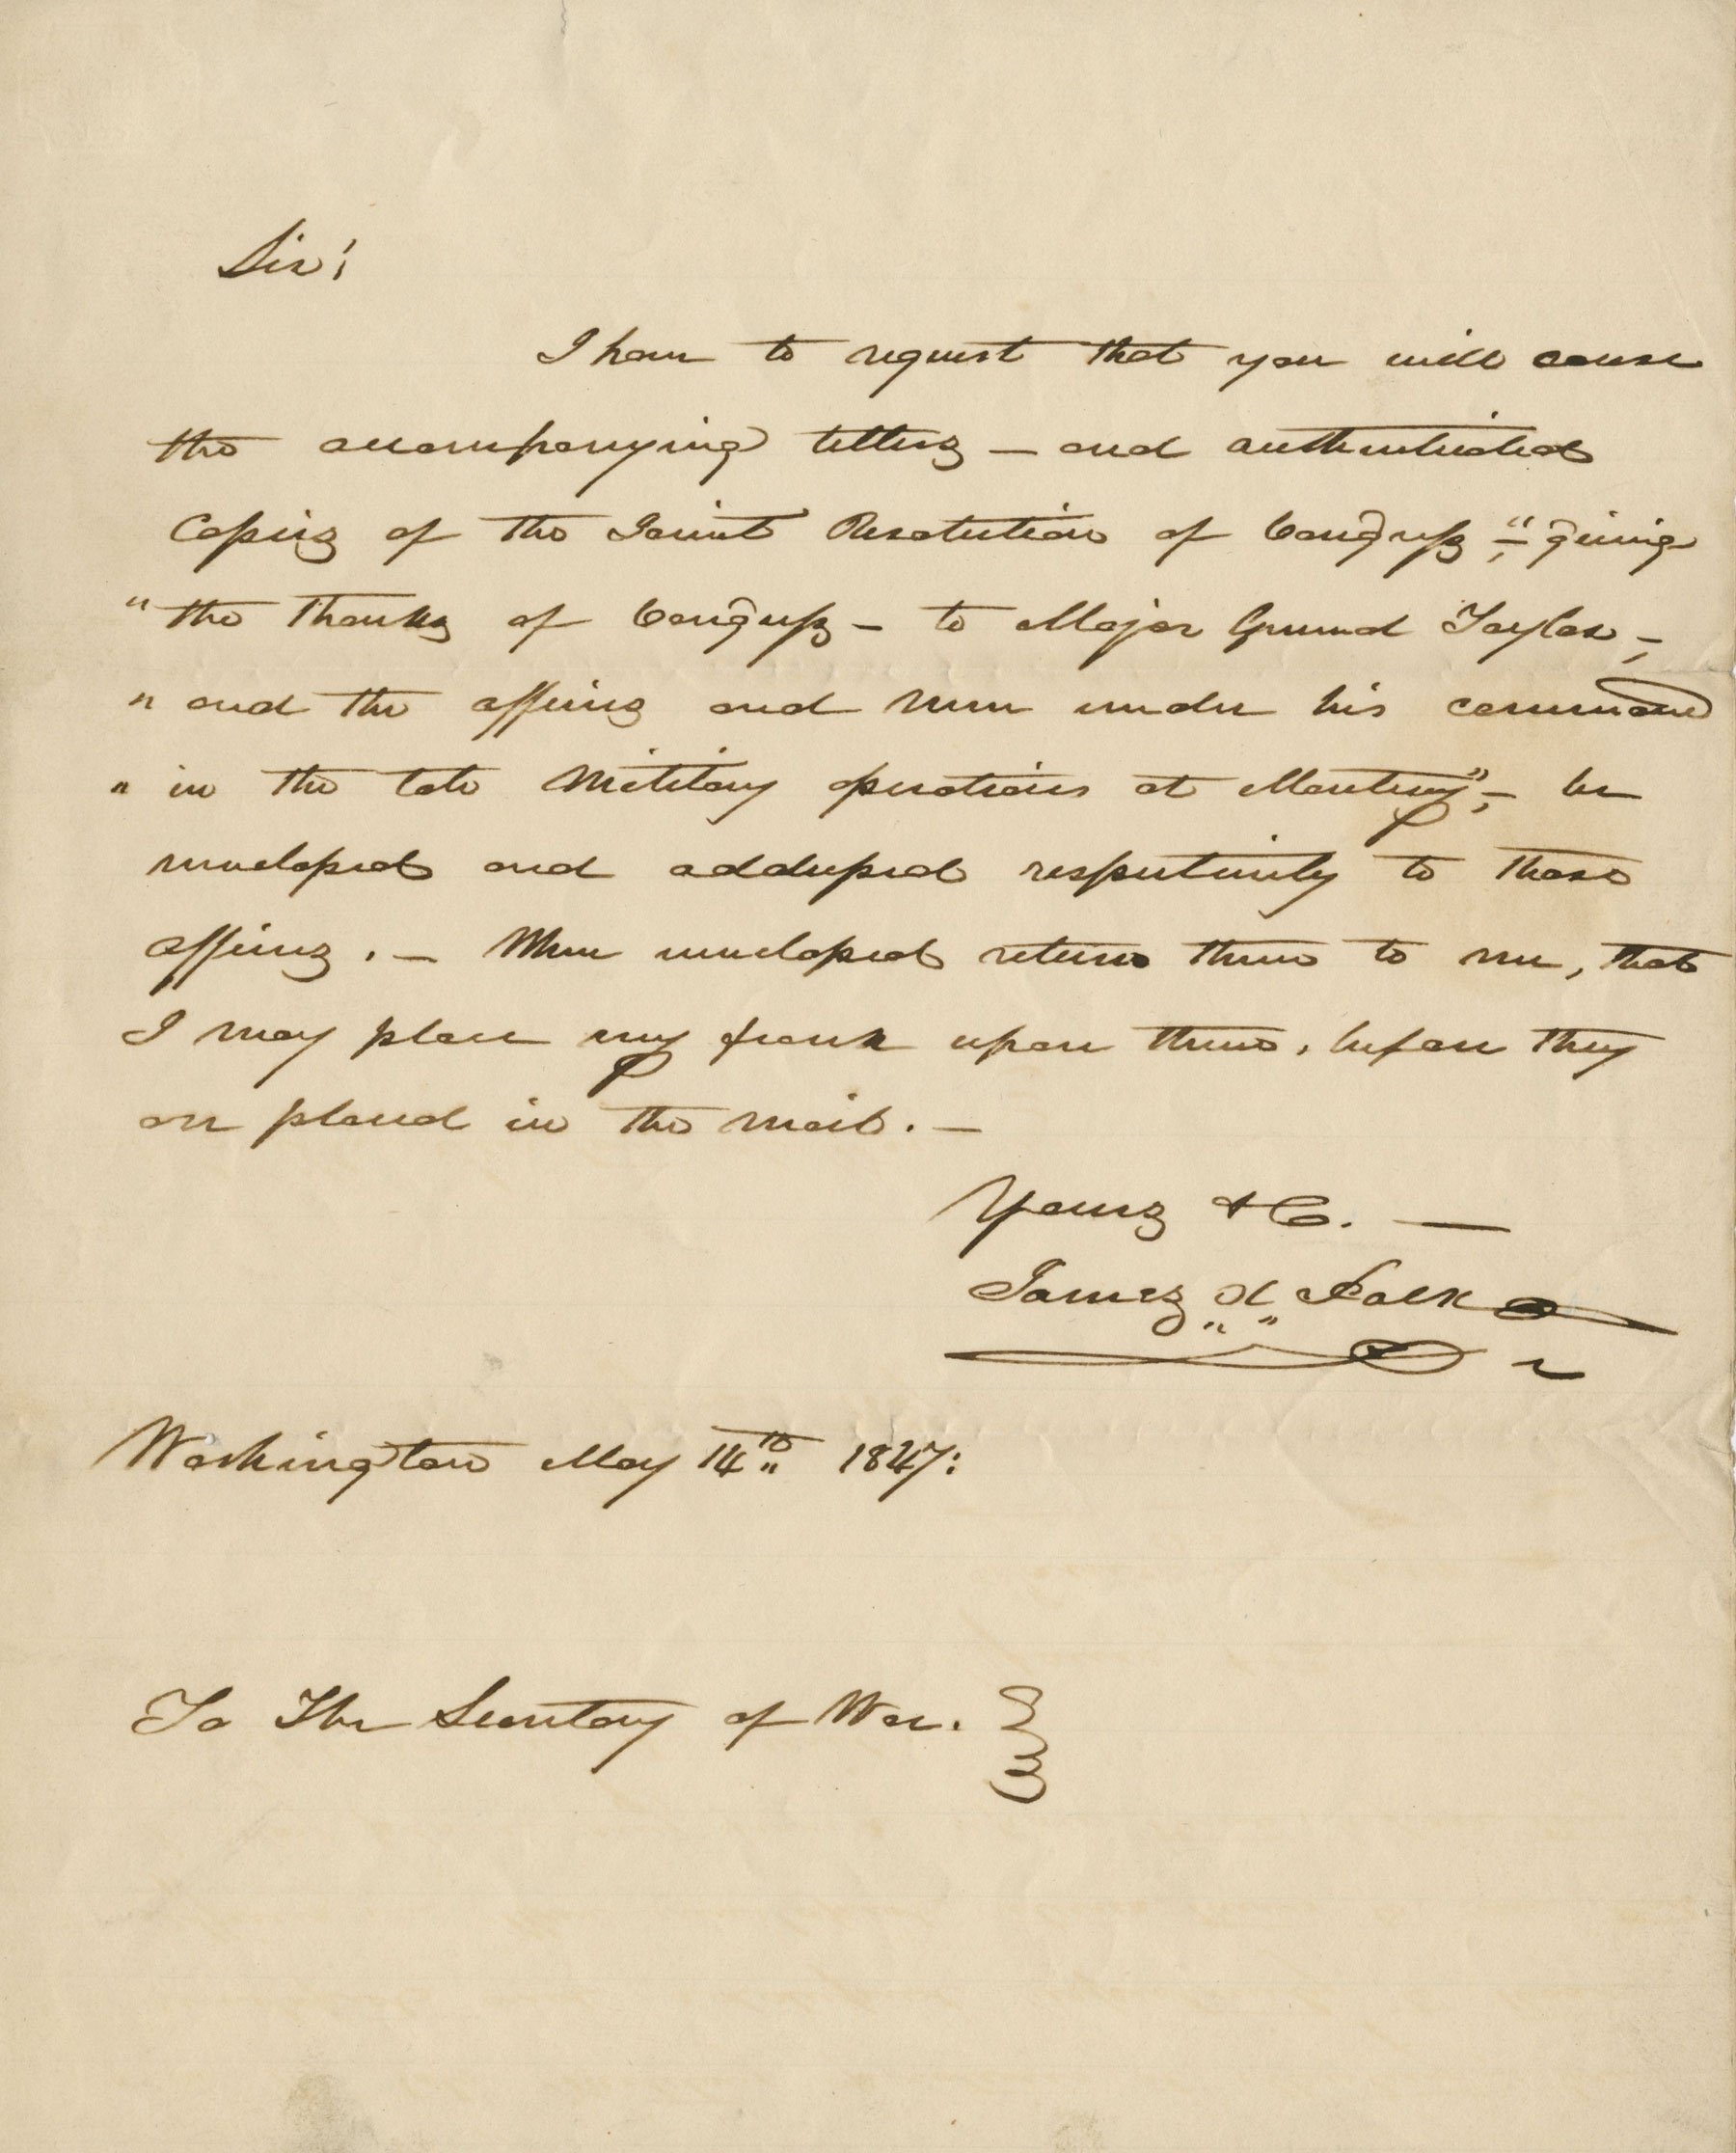 Sir:
I have to request that you will cause
the accompanying letters – and authenticated
Copies of the Joint Resolution of Congress, – "giving
" the thanks of Congress – to Major General Taylor, –
" and the officers and men under his command
" in the late Military operations at Monterey", – be
enveloped and addressed respectively to those
officers. – When enveloped return them to me, that
I may place my frank upon them, before they
are placed in the mail. –
Yours &C. —
James K Polk
Washington May 14th 1847:
To The Secretary of War.